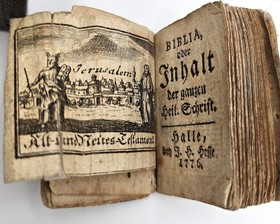 Jerusalem
Alt-und Neues-Testament
BIBLIA,
oder
Inhalt
der ganzen
Heil. Schrift,
Halle,
bey J. H. Hesse
1776.